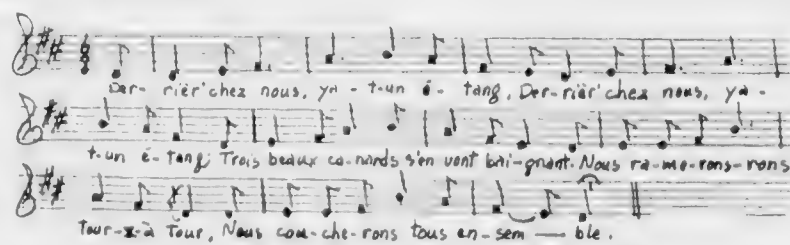 Der-rièr' chez nous, ya-t-un é-tang, Der-rièr' chez nous, ya-
t-un é-tang; Trois beaux ca-nards s'en vont bai-gnant. Nous ra-me-rons-rons
Tour-z-à Tour, Nous cou-che-rons tous en-sem-ble.